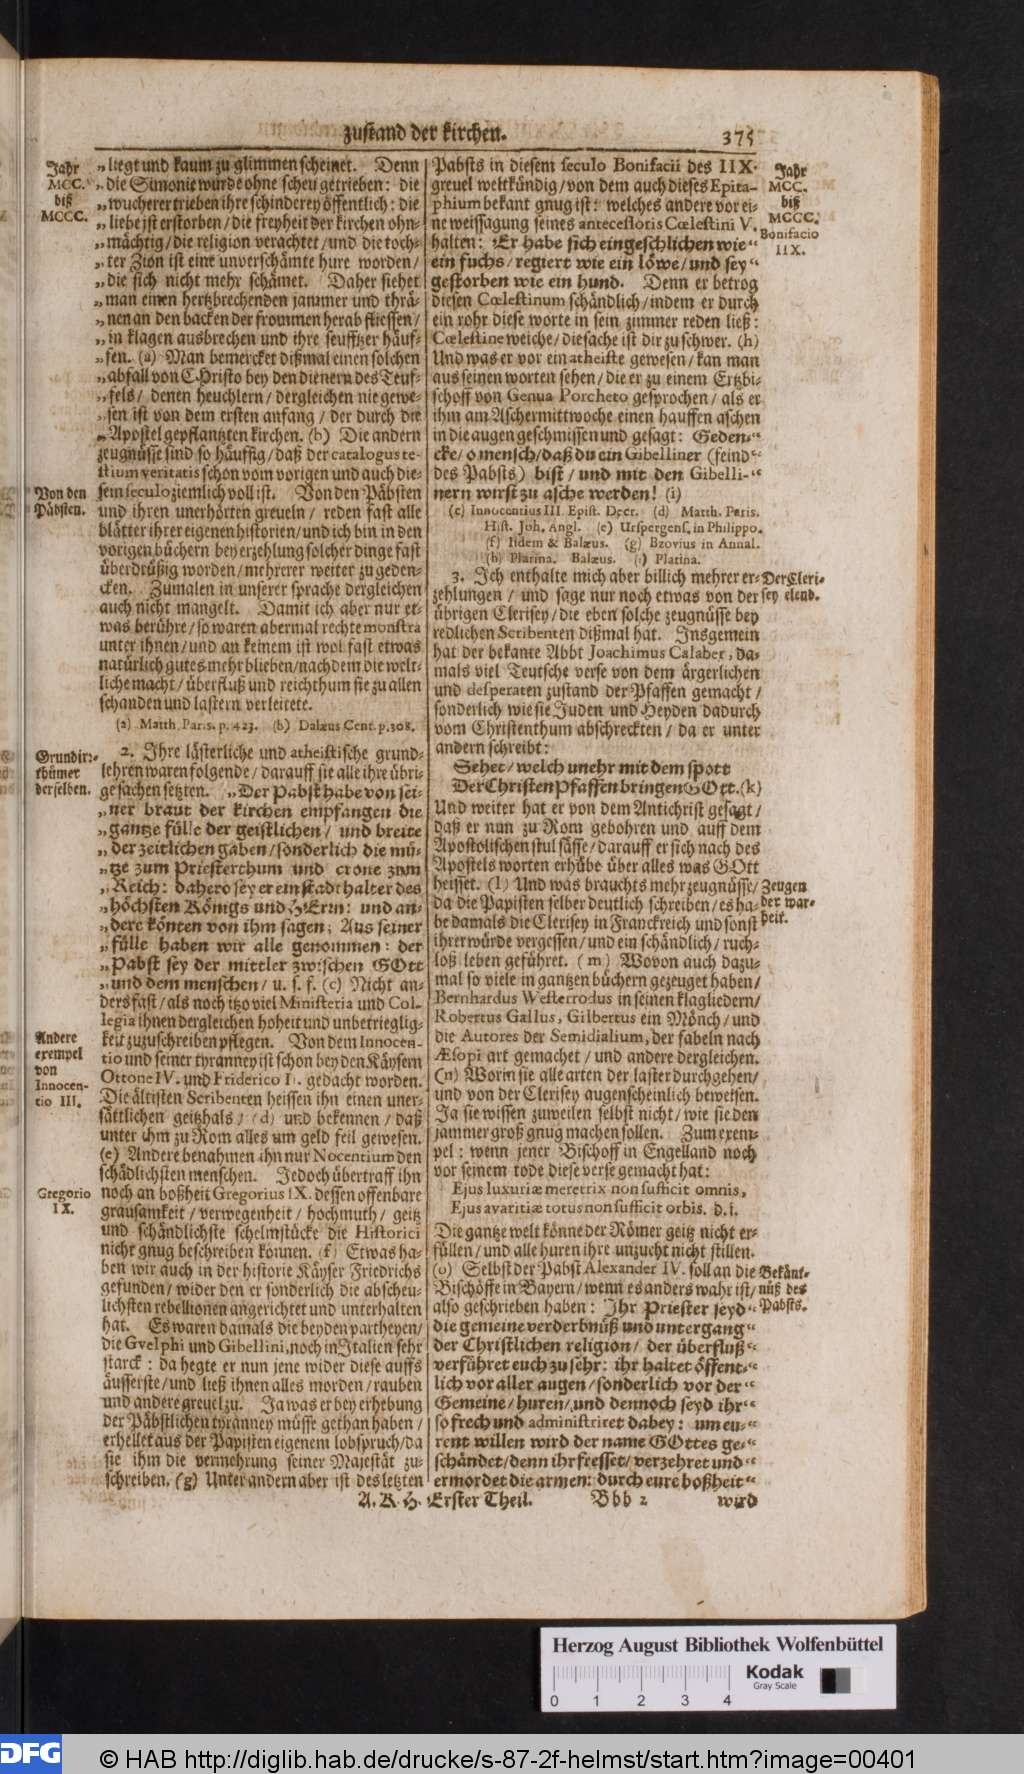 zustand der kirchen.
375
Jahr
MCC.
biß
MCCC.
„liegt und kaum zu glimmen scheinet. Denn
„die Simonie würde ohne scheu getrieben: die
„wucherer trieben ihre schinderey öffentlich: die
„liebe ist erstorben/die freyheit der kirchen ohn-
„mächtig/die religion verachtet/und die toch-
„ter Zion ist eine unverschämte hure worden/
„die sich nicht mehr schämet. Daher siehet
„man einen hertzbrechenden jammer und thrä-
„nen an den backen der frommen herab fliessen/
„in klagen ausbrechen und ihre seufftzer häuf-
„fen. (a) Man bemercket dißmal einen solchen
„abfall von CHristo bey den dienern des Teuf-
„fels/ denen heuchlern/ dergleichen nie gewe-
„sen ist von dem ersten anfang/ der durch die
„Apostel gepflantzten kirchen. (b) Die andern
zeugnüsse sind so häuffig/daß der catalogus te-
stium veritatis schon vom vorigen und auch die-
sem seculo ziemlich voll ist. Von den Päbsten
und ihren unerhörten greueln/ reden fast alle
blätter ihrer eigenen historien/und ich bin in den
vorigen büchern bey erzehlung solcher dinge fast
überdrüßig worden/mehrerer weiter zu geden-
cken. Zumalen in unserer sprache dergleichen
auch nicht mangelt. Damit ich aber nur et-
was berühre/so waren abermal rechte monstra
unter ihnen/und an keinem ist wol fast etwas
natürlich gutes mehr blieben/nachdem die welt-
liche macht/ überfluß und reichthum sie zu allen
schanden und lastern verleitete.
(a) Matth. Paris. p. 423. (b) Balæus Cent. p. 308.
Von den
Päbsten.
2. Ihre lästerliche und atheistische grund-
lehren waren folgende/darauff sie alle ihre übri-
ge sachen setzten. „Der Pabst habe von sei-
„ner braut der kirchen empfangen die
„gantze fülle der geistlichen/ und breite
„der zeitlichen gaben/sonderlich die mü-
„tze zum Priesterthum und crone zum
„Reich: dahero sey er ein stadthalter des
„höchsten Königs und HErrn: und an-
„dere könten von ihm sagen; Aus seiner
„fülle haben wir alle genommen: der
„Pabst sey der mittler zwischen GOtt
„und dem menschen/ u. s. f. (c) Nicht an-
ders fast/als noch itzo viel Ministeria und Col-
legia ihnen dergleichen hoheit und unbetrieglig-
keit zuzuschreiben pflegen. Von dem Innocen-
tio und seiner tyranney ist schon bey den Käysern
Ottone IV. und Friderico I. gedacht worden.
Die ältisten Scribenten heissen ihn einen uner-
sättlichen geitzhals/ (d) und bekennen/ daß
unter ihm zu Rom alles um geld feil gewesen.
(e) Andere benahmen ihn nur Nocentium den
schädlichsten menschen. Jedoch übertraff ihn
noch an boßheit Gregorius IX. dessen offenbare
grausamkeit/ verwegenheit/ hochmuth/ geitz
und schändlichste schelmstücke die Historici
nicht gnug beschreiben können. (f) Etwas ha-
ben wir auch in der historie Käyser Friedrichs
gefunden/ wider den er sonderlich die abscheu-
lichsten rebellionen angerichtet und unterhalten
hat. Es waren damals die beyden partheyen/
die Gvelphi und Gibellini, noch in Italien sehr
starck: da hegte er nun jene wider diese auffs
äusserste/und ließ ihnen alles morden/rauben
und andere greuel zu. Ja was er bey erhebung
der Päbstlichen tyranney müsse gethan haben/
erhellet aus der Papisten eigenem lobspruch/da
sie ihm die vermehrung seiner Majestät zu-
schreiben. (g) Unter andern aber ist des letzten
Grundirr-
thümer
derselben.
Andere
exempel
von
Innocen-
tio III.
Gregorio
IX.
Pabsts in diesem seculo Bonifacii des IIX.
greuel weltkündig/von dem auch dieses Epita-
phium bekant gnug ist: welches andere vor ei-
ne weissagung seines antecessoris Cœlestini V.
halten: Er habe sich eingeschlichen wie“
ein fuchs/regiert wie ein löwe/und sey“
gestorben wie ein hund. Denn er betrog
diesen Cœlestinum schändlich/indem er durch
ein rohr diese worte in sein zimmer reden ließ:
Cœlestine weiche/die sache ist dir zu schwer. (h)
Und was er vor ein atheiste gewesen/kan man
aus seinen worten sehen/die er zu einem Ertzbi-
schoff von Genua Porcheto gesprochen/ als er
ihm am Aschermittwoche einen hauffen aschen
in die augen geschmissen und gesagt: Geden-“
cke/ o mensch/daß du ein Gibelliner (feind“
des Pabsts) bist/ und mit den Gibelli-“
nern wirst zu asche werden! (i)
(c) Innocentius III. Epist. Decr. (d) Matth. Paris.
Hist. Joh. Angl. (e) Urspergens. in Philippo.
(f) Iidem & Balæus. (g) Bzovius in Annal.
(h) Platina. Balæus. (i) Platina.
3. Ich enthalte mich aber billich mehrer er-
zehlungen/ und sage nur noch etwas von der
übrigen Clerisey/die eben solche zeugnüsse bey
redlichen Scribenten dißmal hat. Insgemein
hat der bekante Abbt Joachimus Calaber, da-
mals viel Teutsche verse von dem ärgerlichen
und desperaten zustand der Pfaffen gemacht/
sonderlich wie sie Juden und Heyden dadurch
vom Christenthum abschreckten/ da er unter
andern schreibt:
Sehet/welch unehr mit dem spott
Der Christen Pfaffen bringen GOtt. (k)
Und weiter hat er von dem Antichrist gesagt/
daß er nun zu Rom gebohren und auff dem
Apostolischen stul sässe/darauff er sich nach des
Apostels worten erhübe über alles was GOtt
heisset. (l) Und was brauchts mehr zeugnüsse/
da die Papisten selber deutlich schreiben/es ha-
be damals die Clerisey in Franckreich und sonst
ihrer würde vergessen/und ein schändlich/ ruch-
loß leben geführet. (m) Wovon auch dazu-
mal so viele in gantzen büchern gezeuget haben/
Bernhardus Westerrodus in seinen klagliedern/
Robertus Gallus, Gilbertus ein Mönch/und
die Autores der Semidialium, der fabeln nach
Æsopi art gemachet/und andere dergleichen.
(n) Worin sie alle arten der laster durchgehen/
und von der Clerisey augenscheinlich beweisen.
Ja sie wissen zuweilen selbst nicht/wie sie den
jammer groß gnug machen sollen. Zum exem-
pel: wenn jener Bischoff in Engelland noch
vor seinem tode diese verse gemacht hat:
Ejus luxuriæ meretrix non sufficit omnis,
Ejus avaritiæ totus non sufficit orbis. d. i.
Die gantze welt könne der Römer geitz nicht er-
füllen/und alle huren ihre unzucht nicht stillen.
(o) Selbst der Pabst Alexander IV. soll an die
Bischöffe in Bayern/wenn es anders wahr ist/
also geschrieben haben: Ihr Priester seyd“
die gemeine verderbnüß und untergang“
der Christlichen religion/ der überfluß“
verführet euch zu sehr: ihr haltet öffent-“
lich vor aller augen/sonderlich vor der“
Gemeine/huren/und dennoch seyd ihr“
so frech und administriret dabey: um eu-“
rent willen wird der name GOttes ge-“
schändet/denn ihr fresset/verzehret und“
ermordet die armen: durch eure boßheit“
Jahr
MCC.
biß
MCCC.
Bonifacio
IIX.
Der Cleri-
sey elend.
Zeugen
der war-
heit.
Bekänt-
nüß des
Pabsts.
A. K. H. Erster Theil.
Bbb 2
wird
Herzog August Bibliothek Wolfenbüttel
0 1 2 3 4
Kodak
Gray Scale
DFG
© HAB http://diglib.hab.de/drucke/s-87-2f-helmst/start.htm?image=00401